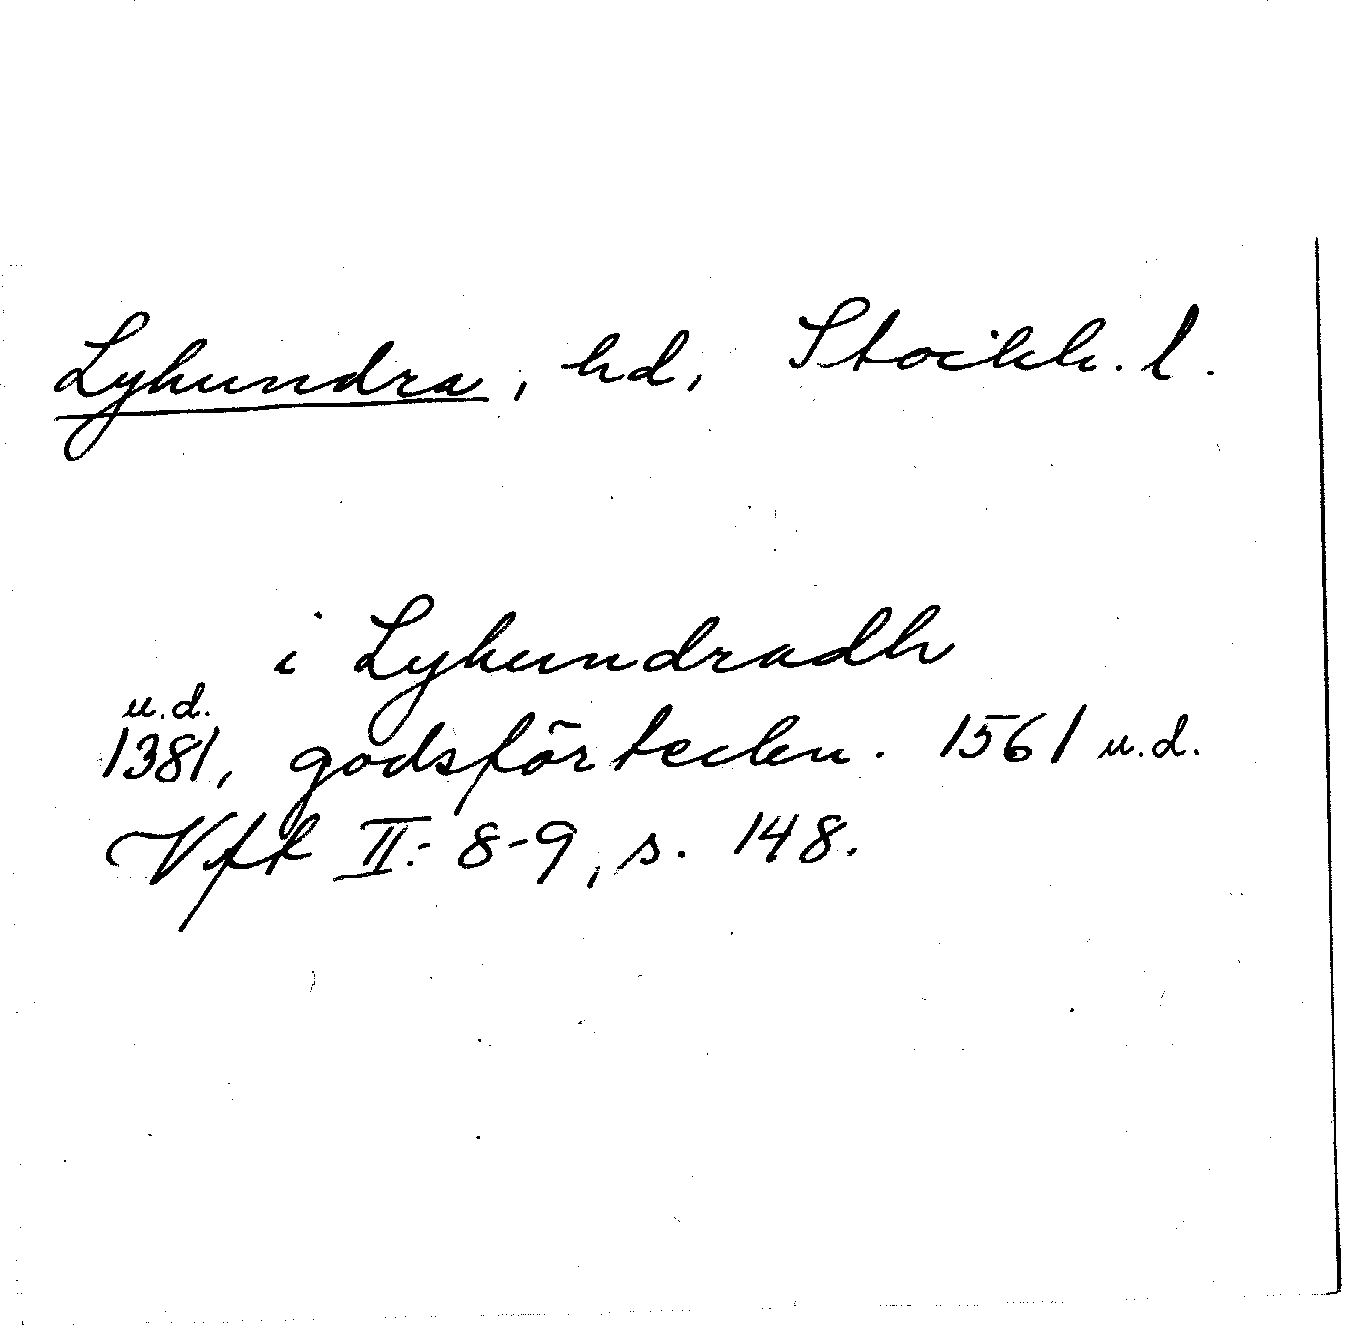 Lyhundra, hd, Stockh. l.
i Lyhundradh
u.d.
1381, godsförteckn. 1561 u.d.
Vfk II: 8-9, s. 148.